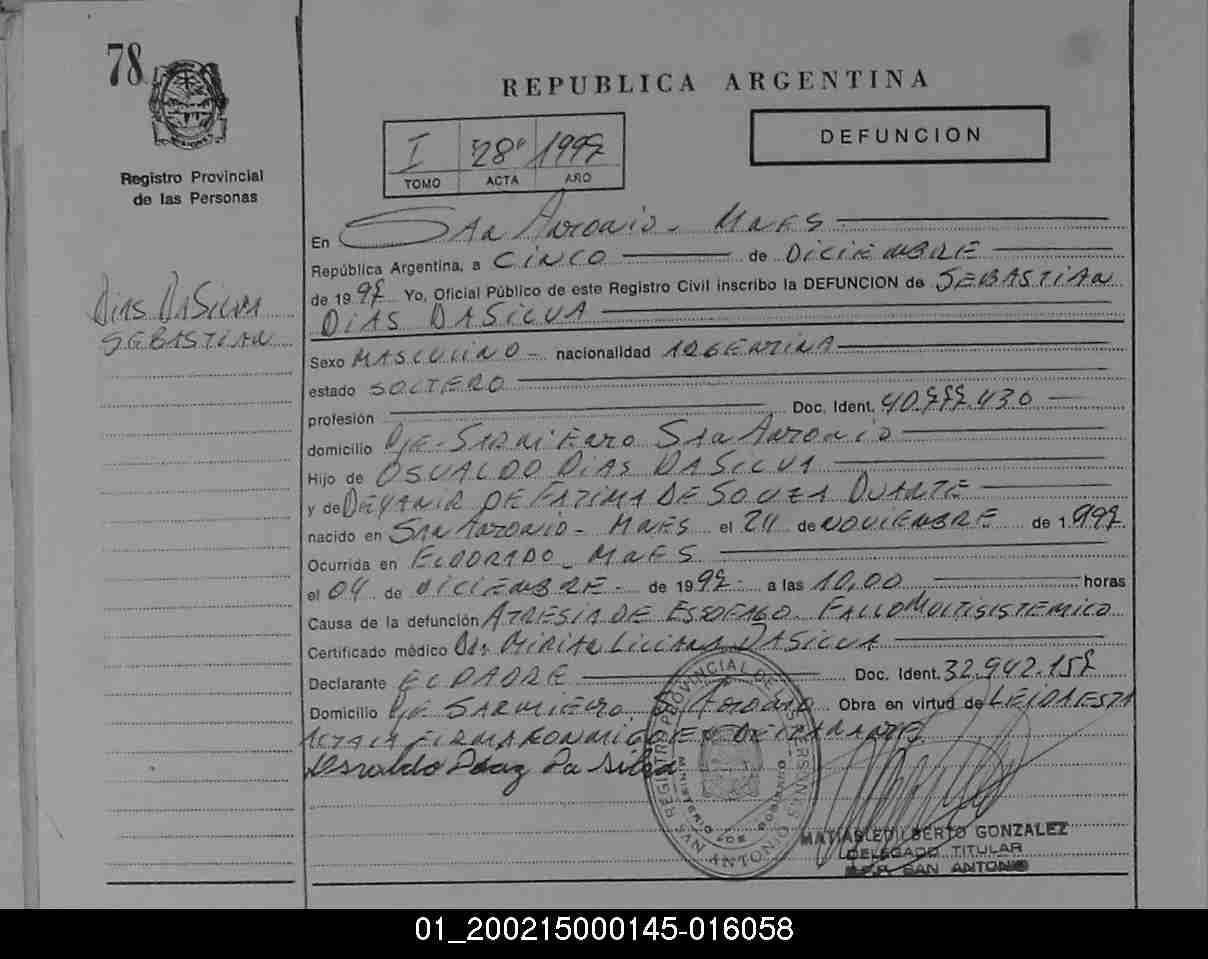 78
REPUBLICA ARGENTINA
I 28" 1997
TOMO ACTA AÑO
DEFUNCION
Registro Provincial
de las Personas
DIAS DASILVA
SEBASTIAN
En SAN ANTONIO - MNES
República Argentina, a CINCO de DICIEMBRE
de 1997 Yo, Oficial Público de este Registro Civil inscribo la DEFUNCION de SEBASTIAN
DIAS DASILVA
Sexo MASCULINO - nacionalidad ARGENTINA
estado SOLTERO
profesión Doc. Ident. 40.777.430
domicilio PJE - SARMIENTO SAN ANTONIO
Hijo de OSVALDO DIAS DA SILVA
y de DEYANIR DE FATIMA DE SOUZA DUARTE
nacido en SAN ANTONIO - MNES el 24 de NOVIEMBRE de 1.997
Ocurrida en ELDORADO - MNES
el 04 de DICIEMBRE - de 1997 a las 10,00 horas
Causa de la defunción ATRESIA DE ESSOFAGO. FALLO MULTISISTEMICO
Certificado médico DRA MIRIAN LILIANA DASILVA
Declarante EL PADRE Doc. Ident. 32.942.157
Domicilio PJE SARMIENTO. S. ANTONIO Obra en virtud de LEIDA ESTA
ACTA LA FIRMA CONMIGO EL DECLARANTE
Osvaldo Diaz Da Silva
REGISTRO PROVINCIAL DE LAS PERSONAS
MINISTERIO DE GOBIERNO
SAN ANTONIO
MATIAS EDILBERTO GONZALEZ
DELEGADO TITULAR
R.P.P. SAN ANTONIO
01_200215000145-016058